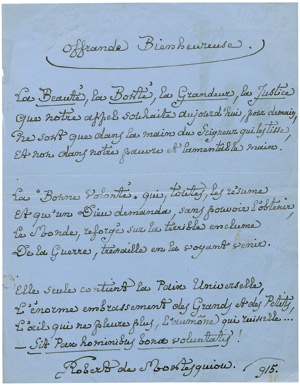 Offrande Bienheureuse.
La Beauté, la Bonté, la Grandeur, la Justice
Que notre appel souhaite aujourd'hui, pour demain,
Ne sont que dans la main du Seigneur qui les tisse,
Et non dans notre pauvre et lamentable main.
La "Bonne Volonté" qui, toutes, les résume
Et qu'un Dieu demanda, sans pouvoir l'obtenir,
Le Monde, reforgé sur la terrible enclume
De la Guerre, tressaille en la voyant venir.
Elle seule contient la Paix Universelle,
L'énorme embrassement des Grands et des Petits,
L'œil qui ne pleure plus, l'aumône qui ruisselle...
— Sit Pax hominibus bonæ voluntatis!
Robert de Montesquiou.
915.